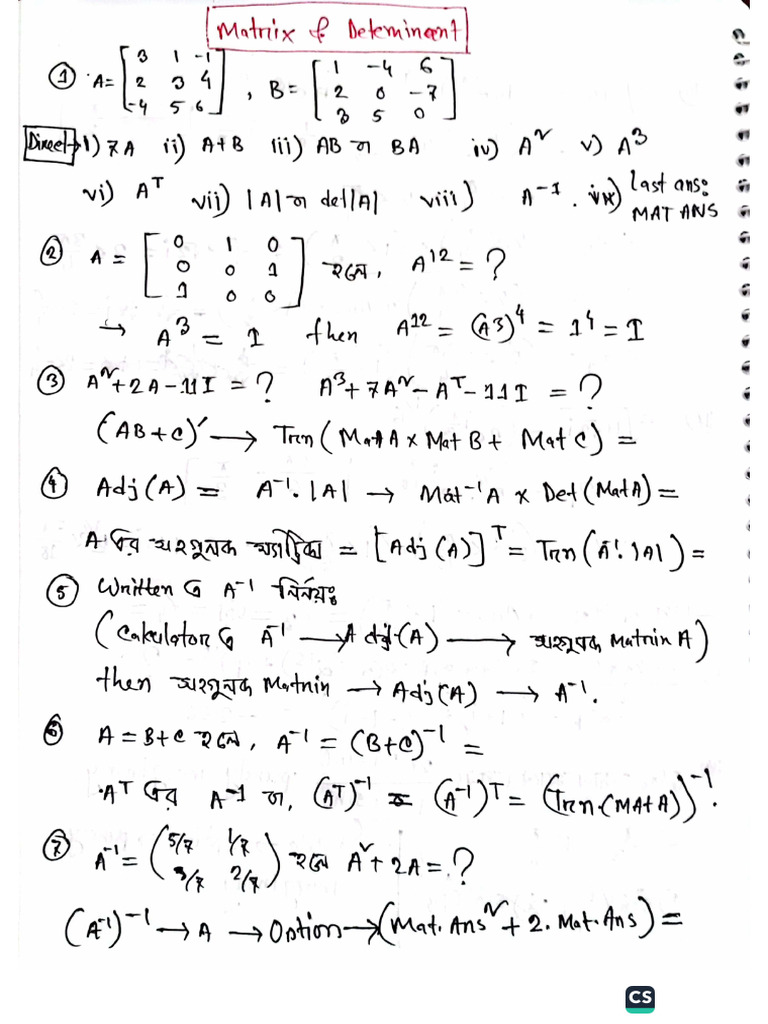 Matrix & Determinant
① A = [3 1 -1; 2 3 4; -4 5 6], B = [1 -4 6; 2 0 -7; 3 5 0]
Direct → i) 7A ii) A+B iii) AB বা BA iv) A² v) A³
vi) Aᵀ vii) |A| বা det|A| viii) A⁻¹. ix) last ans: MAT ANS
② A = [0 1 0; 0 0 1; 1 0 0] হলে, A¹² = ?
↳ A³ = I then A¹² = (A³)⁴ = 1⁴ = I
③ A² + 2A - 11I = ? A³ + 7A² - Aᵀ - 11I = ?
(AB + C)′ → Trn (Mat A × Mat B + Mat C) =
④ Adj (A) = A⁻¹. |A| → Mat⁻¹ A × Det (Mat A) =
A এর সহগুনক ম্যাট্রিক্স = [Adj (A)]ᵀ = Trn (A⁻¹. |A|) =
⑤ Written এ A⁻¹ নির্নয়ঃ
(Calculator এ A⁻¹ → Adj (A) → সহগুনক Matrix A)
then সহগুনক Matrix → Adj (A) → A⁻¹.
⑥ A = B + C হলে, A⁻¹ = (B + C)⁻¹ =
Aᵀ এর A⁻¹ বা, (Aᵀ)⁻¹ = (A⁻¹)ᵀ = (Trn (MAt A))⁻¹.
⑦ A⁻¹ = (5/7 1/7; 3/7 2/7) হলে A² + 2A = ?
(A⁻¹)⁻¹ → A → Option → (Mat. Ans² + 2. Mat. Ans) =
CS